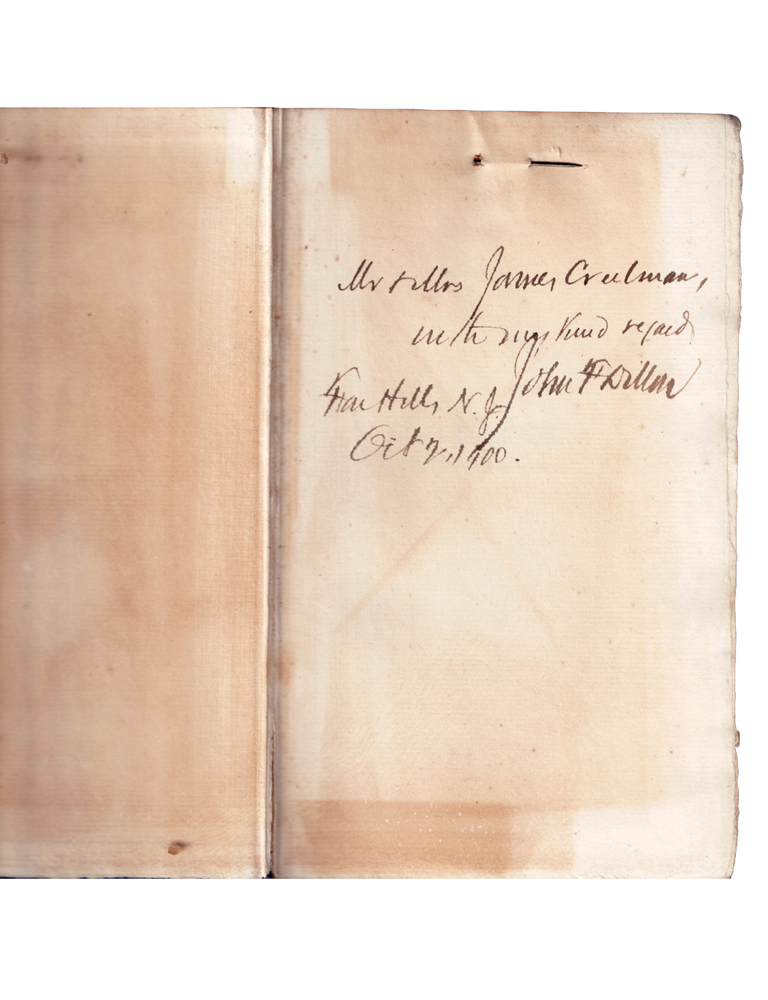 Mr & Mrs James Creelman,
with my kind regards
John F Dillon
Far Hills N. J.
Oct 2, 1900.